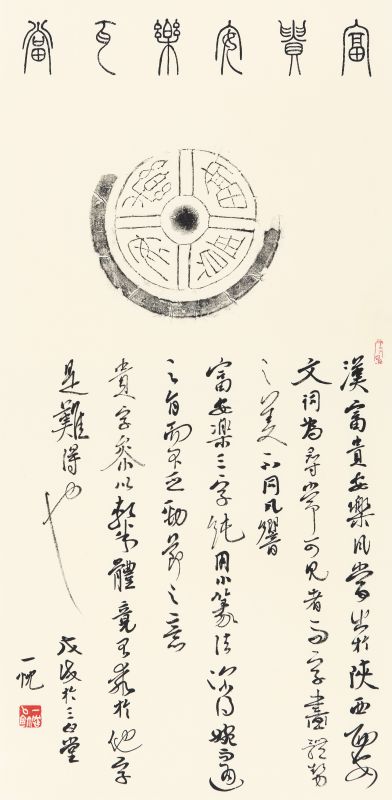 富貴安樂瓦當
漢富貴安樂瓦當出於陝西西安
文詞為尋常可見者而字畫體勢
之美不同凡響
富安樂三字純用小篆法深得婉通
之旨而不乏勁節之意
貴字參以體竟於他字
是難得也
於三堂
一